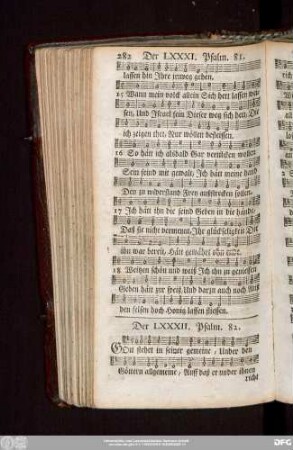 282 Der LXXXI. Psalm. 81.
lassen hin Ihre irweg gehen.
15 Wann mein volck allein Sich hett lassen
sen, und Israel sein Dieser weg sich hett Die
ich zeigen thet, Nur wöllen
16 So hätt ich alsbald Gar vernichten wollen
Sein feind mit gewalt, Ich hätt meine hend
Den zu widerstand Ihen außstrecken sollen.
17 Ich hätt ihn die feind Geben in die hände
Daß sie nicht vermeynt, Ihr glückseligkeit Die
ihn war bereit, Hätt gewähret ohn
18 Weitzen schön und weiß Ich ihn zu geniessen
Geben hätt zur speiß Und darzu auch noch Auß
den felsen doch Honig lassen fliessen.
Der LXXXII. Psalm. 82.
GOtt stehet in seiner gemeine, Under den
Göttern allgemeine, Auff daß er under ihnen
richt